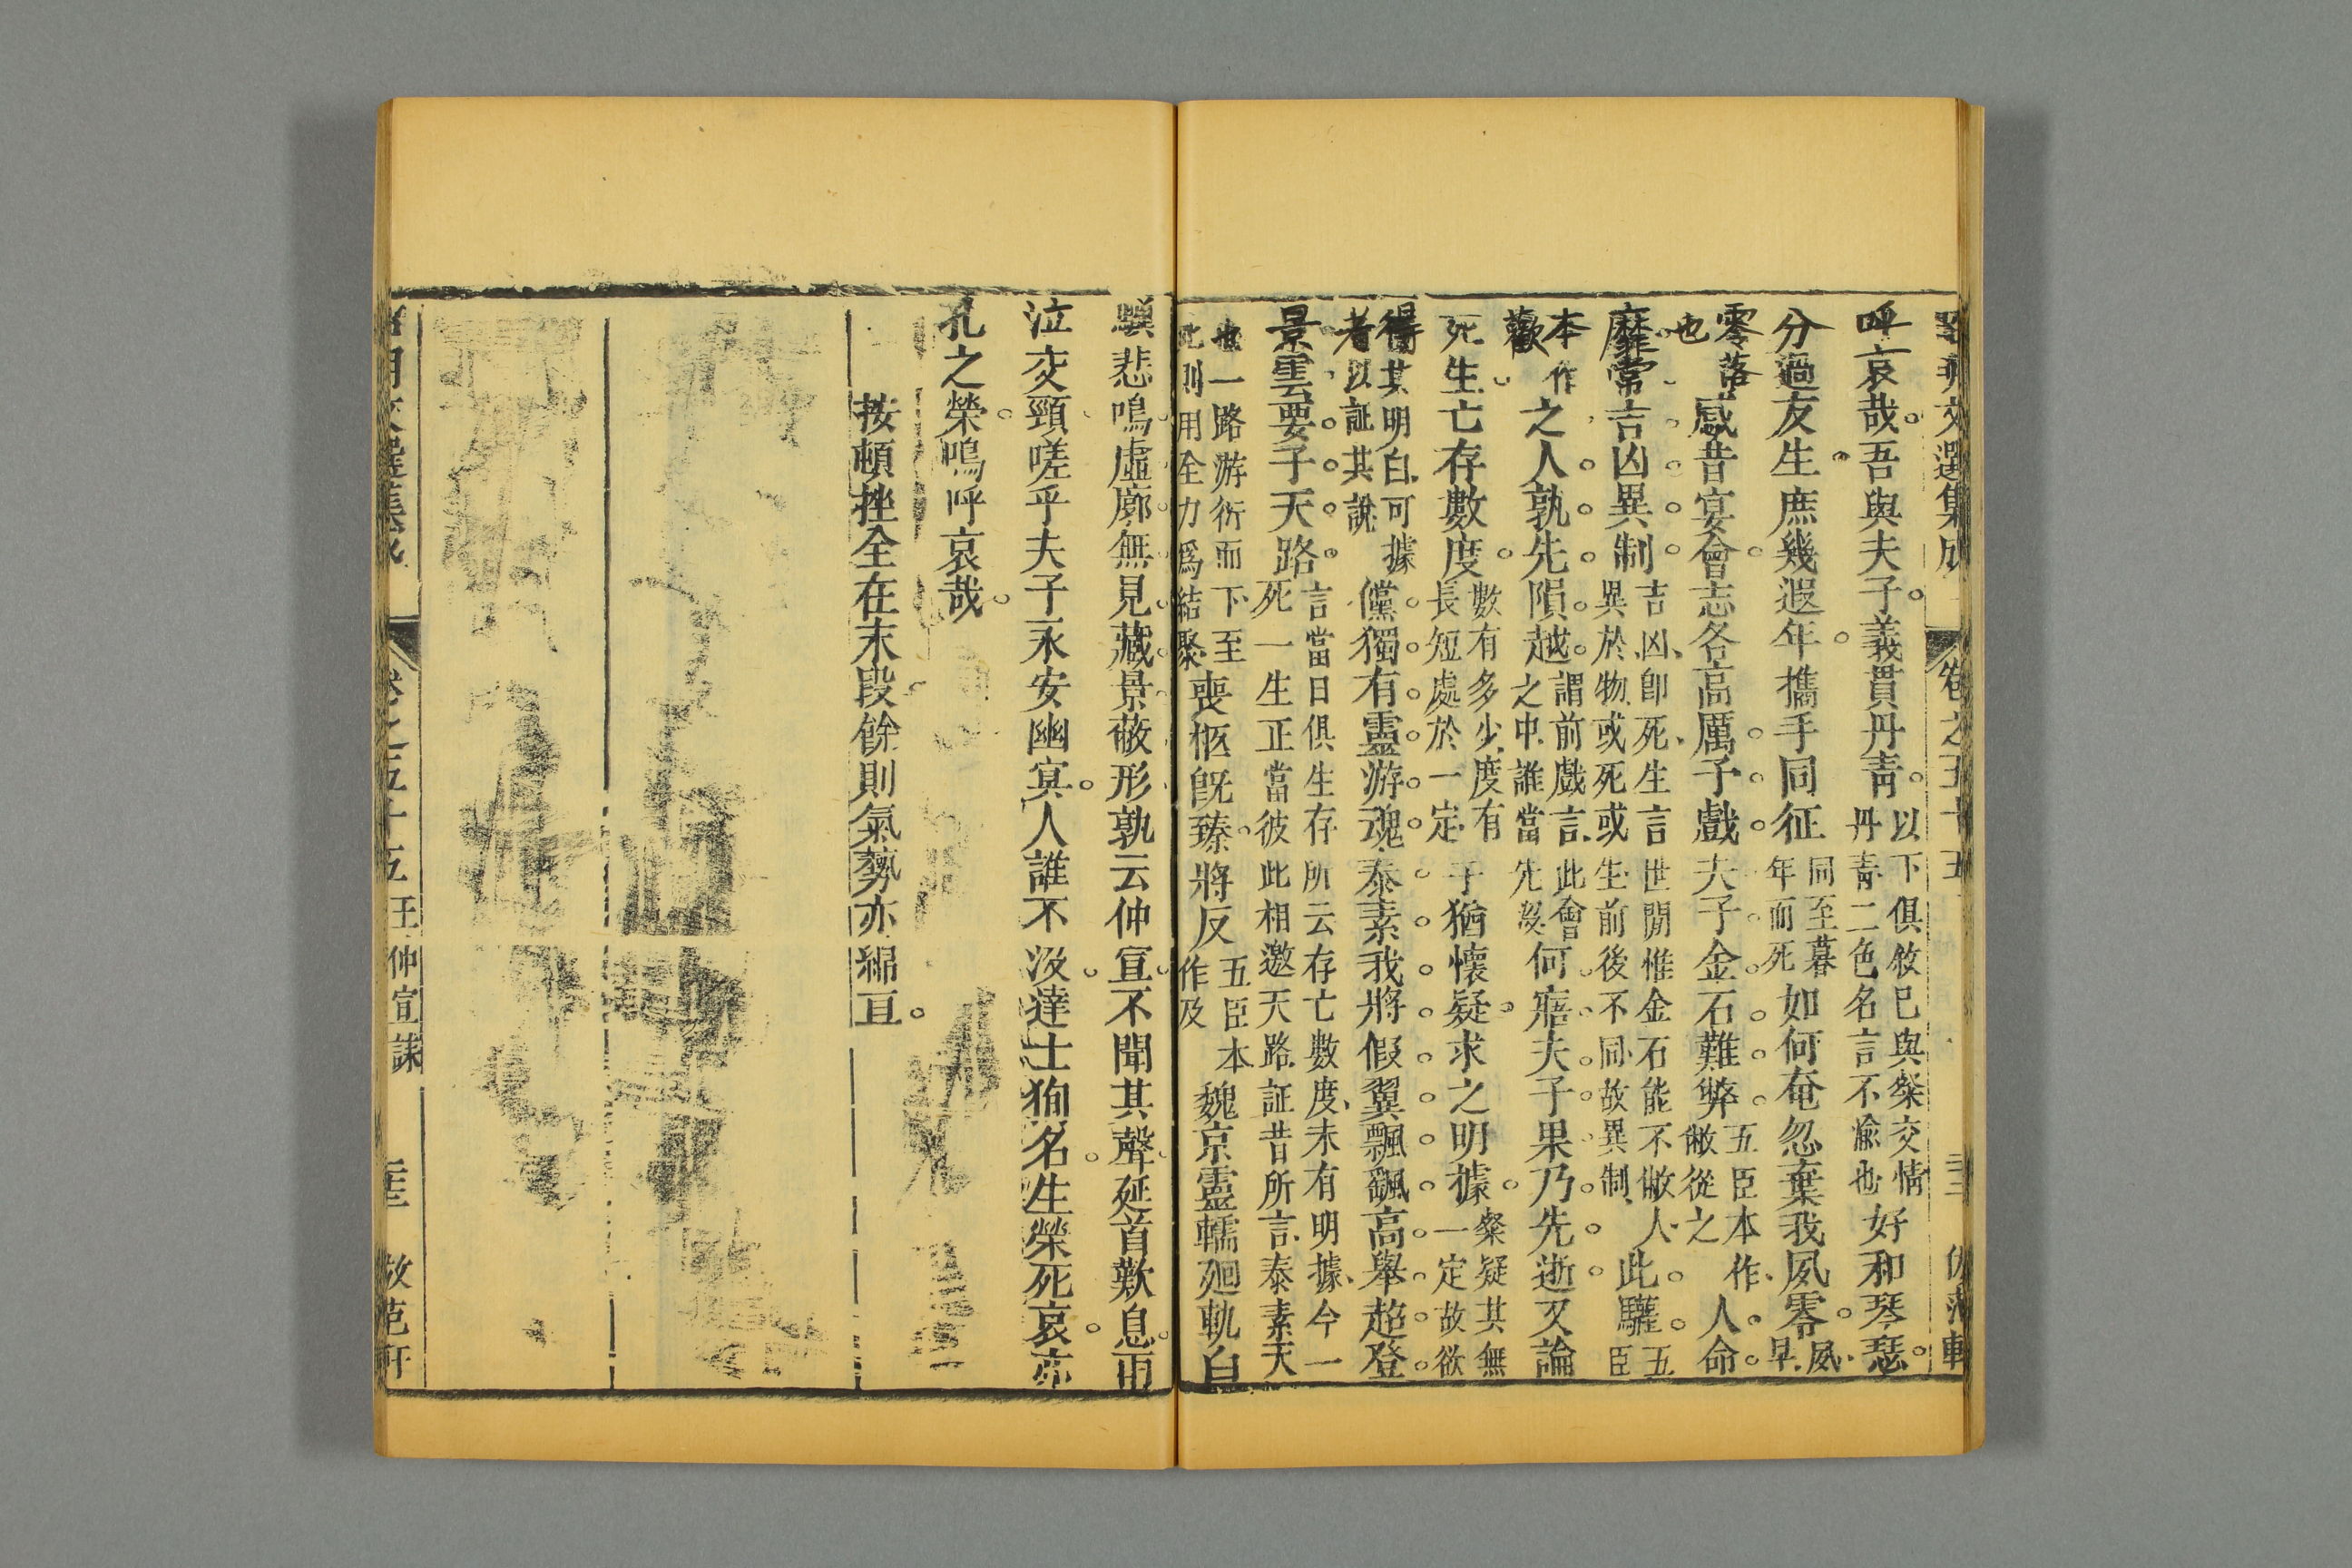 文選集成 卷之五十五
呼哀哉吾與夫子義貫丹青以下俱敘已與粲交情丹青二色名言不渝也好和琴瑟
分過友生庶幾遐年攜手同征同至暮年而死如何奄忽棄我夙零夙早
零落也感昔宴會志各高厲予戲夫子金石難弊五臣本作敝從之人命
靡常言凶異制吉凶卽死生言異於物或死或生前後不同故異制世閒惟金石能不敝人此驩五臣
本作歡之人孰先隕越謂前戲言此會之中誰當先沒何寤夫子果乃先逝又論
死生亡存數度數有多少度有長短處於一定子猶懷疑求之明據粲疑其無一定故欲
得其明白可據者以証其說儻獨有靈游魂泰素我將假翼飄颻高舉超登
景雲要子天路言當日俱生存所云存亡數度未有明據今一死一生正當彼此相邀天路証昔所言泰素天
也一路游衍而下至此則用全力爲結聚喪柩旣臻將反五臣本作及魏京靈轜廻軌白
驥悲鳴虛廓無見藏景蔽形孰云仲宣不聞其聲延首歎息雨
泣交頸嗟乎夫子永安幽冥人誰不沒達士狥名生榮死哀亦
孔之榮嗚呼哀哉
按頓挫全在末段餘則氣勢亦綿亘
文選集成 卷之五十五 王仲宣誄